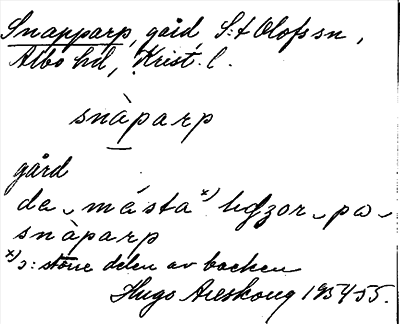 Snapparp, gård, S:t Olofs sn,
Albo hd, Krist. l.
snàparp
gård
de, mésta x) legzor, pə,
snàparp
x) ɔ: större delen av backen
Hugo Areskoug 1954-55.